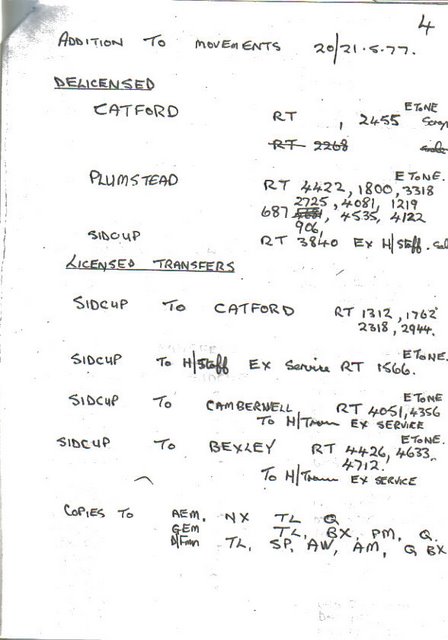 4
ADDITION TO MOVEMENTS 20/21·5·77.
DELICENSED
ETONE
CATFORD RT , 2455
RT 2268
ETONE.
PLUMSTEAD RT 4422, 1800, 3318
2725, 4081, 1219
687 , 4535, 4122
906,
SIDCUP RT 3840 EX H/Staff.
LICENSED TRANSFERS
SIDCUP TO CATFORD RT 1312, 1762
2318, 2944.
ETONE.
SIDCUP TO H/Staff EX Service RT 1566.
ETONE
SIDCUP TO CAMBERWELL RT 4051, 4356
TO H/Train EX SERVICE
ETONE.
SIDCUP TO BEXLEY RT 4426, 4633
4712.
TO H/Train EX SERVICE
COPIES TO AEM, NX TL Q
GEM TL, BX, PM, Q
TL, SP, AW, AM, Q BX